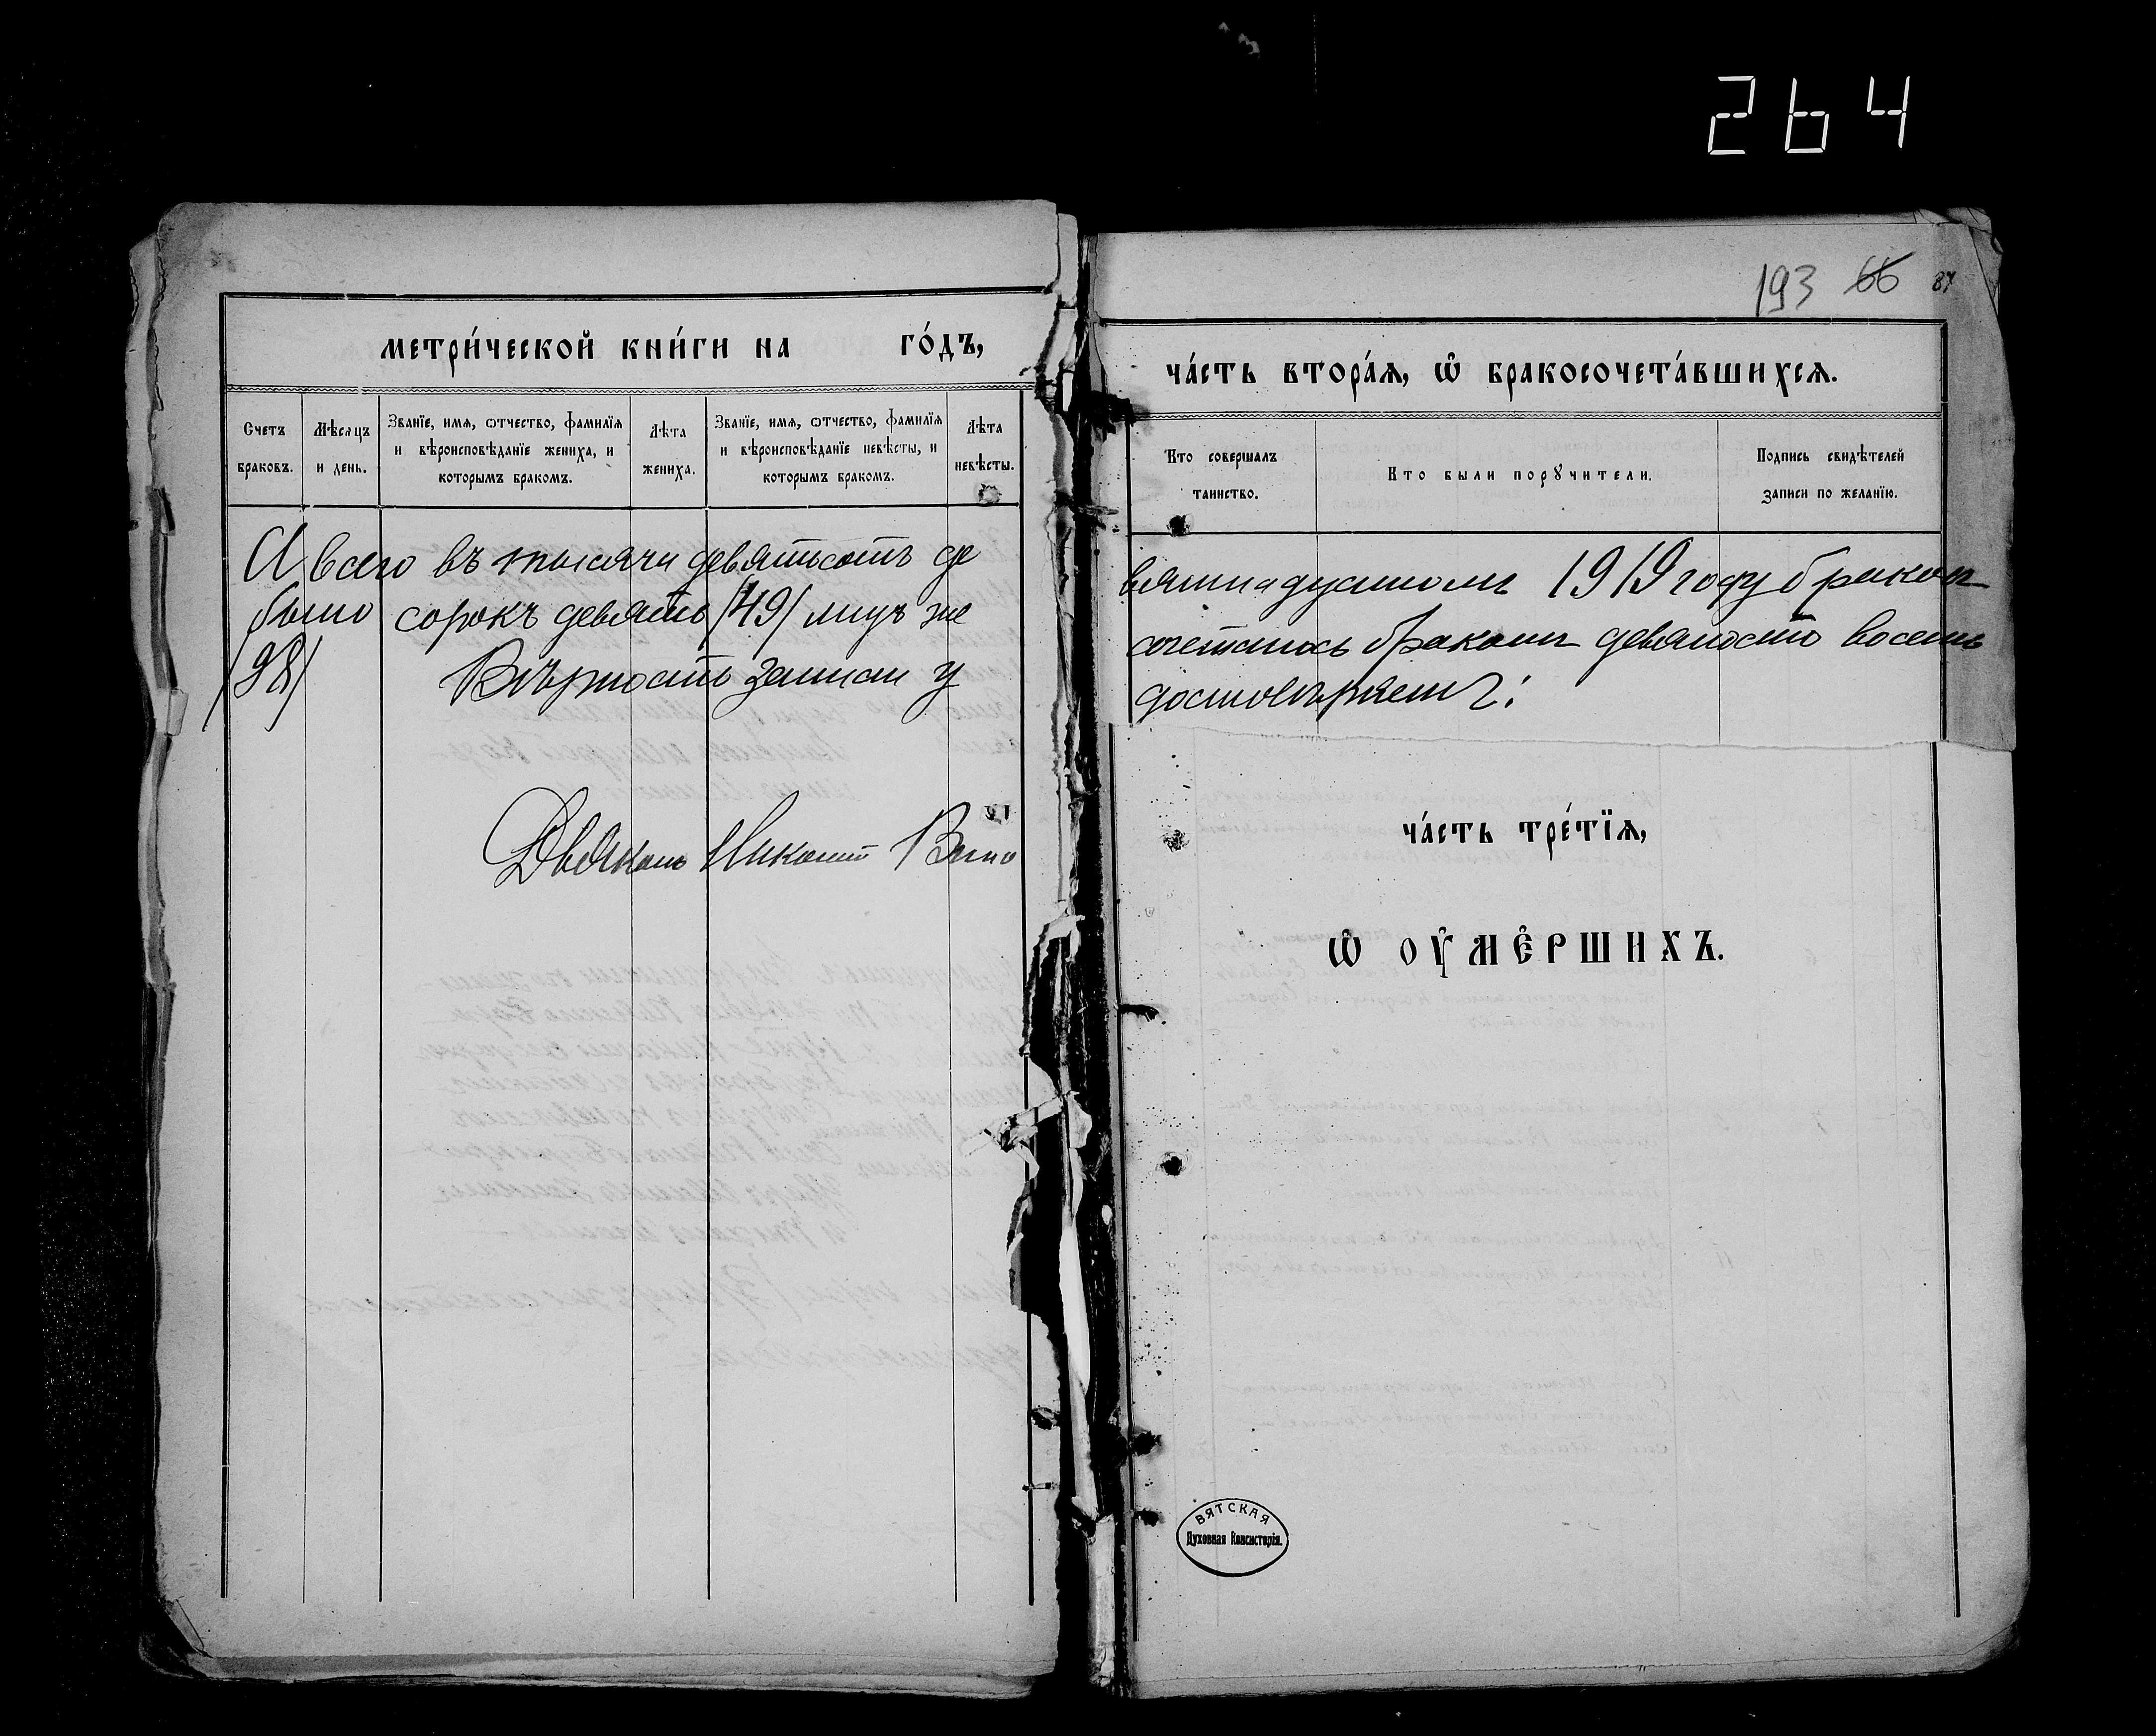 264
193 66 87
МЕТРИ́ЧЕСКОЙ КНИ́ГИ НА ГО́ДЪ,
Счетъ браковъ.
Мѣсѧцъ и день.
Званїе, имѧ, ѿтчество, фамилїѧ и вѣроисповѣданїе жениха, и которымъ бракомъ.
Лѣта жениха.
Званїе, имѧ, ѿтчество, фамилїѧ и вѣроисповѣданїе невѣсты, и которымъ бракомъ.
Лѣта невѣсты.
А всего въ тысяча девятьсотъ де
было сорокъ девять /49/ лицъ же
/98/ Вѣрность записи у
Диаконъ
ЧА́СТЬ ВТОРА́Ѧ, Ѡ҆ БРАКОСОЧЕТА́ВШИХСѦ.
Кто совершалъ таинство.
Кто были порꙋчители.
Подпись свидѣтелей записи по желанїю.
вятнадцатомъ 1919 году браков
сочеталось бракомъ девяносто восемь
достовѣряетъ:
ЧА́СТЬ ТРЕ́ТЇѦ,
Ѡ҆ ОУ҆МЕ́РШИХЪ.
ВЯТСКАЯ
Духовная Консисторія.